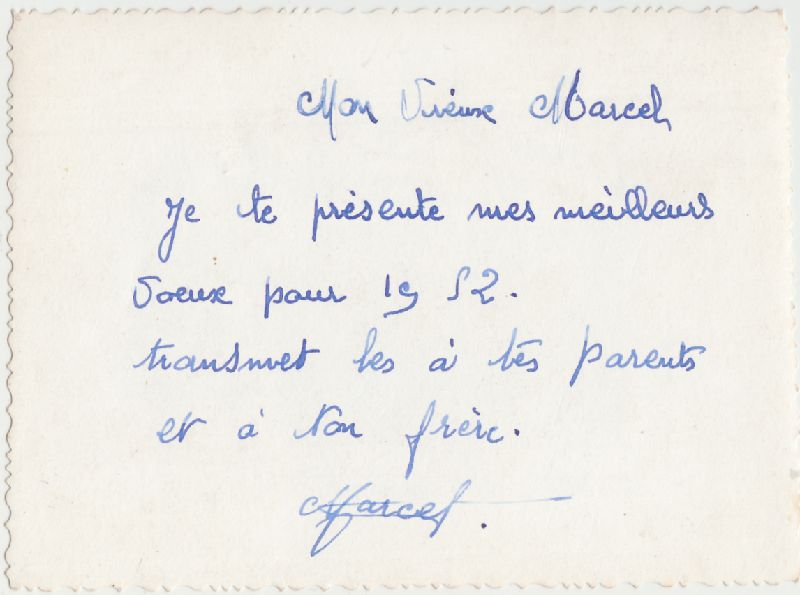 Mon Vieux Marcel
Je te présente mes meilleurs
voeux pour 19 52.
transmet les à tes parents
et à ton frère.
Marcel.